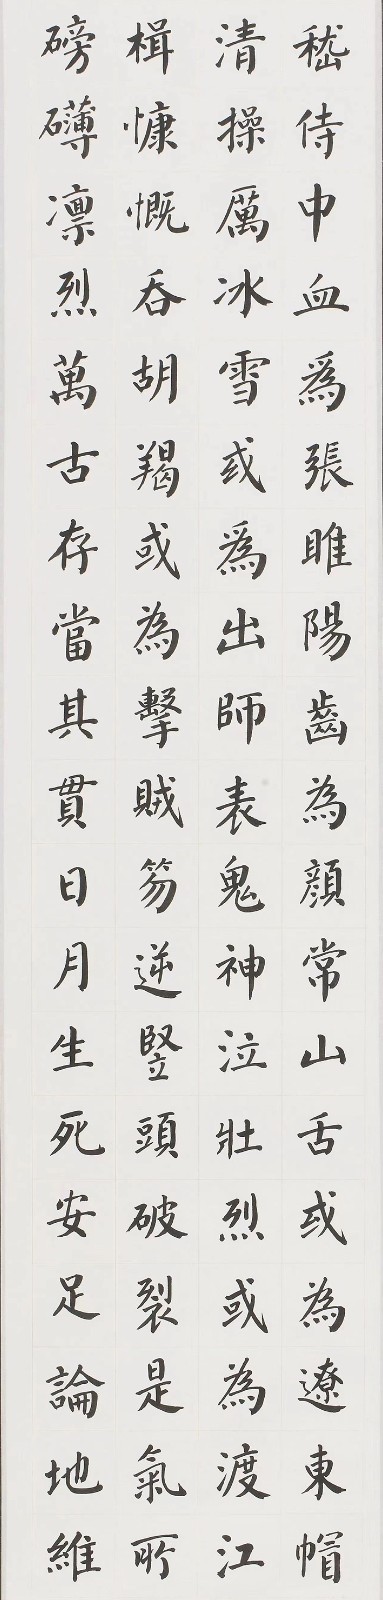 嵇侍中血爲張睢陽齒為顏常山舌或為遼東帽
清操厲冰雪或爲出師表鬼神泣壯烈或為渡江
楫慷慨吞胡羯或為擊賊笏逆豎頭破裂是氣所
磅礴凛烈萬古存當其貫日月生死安足論地維